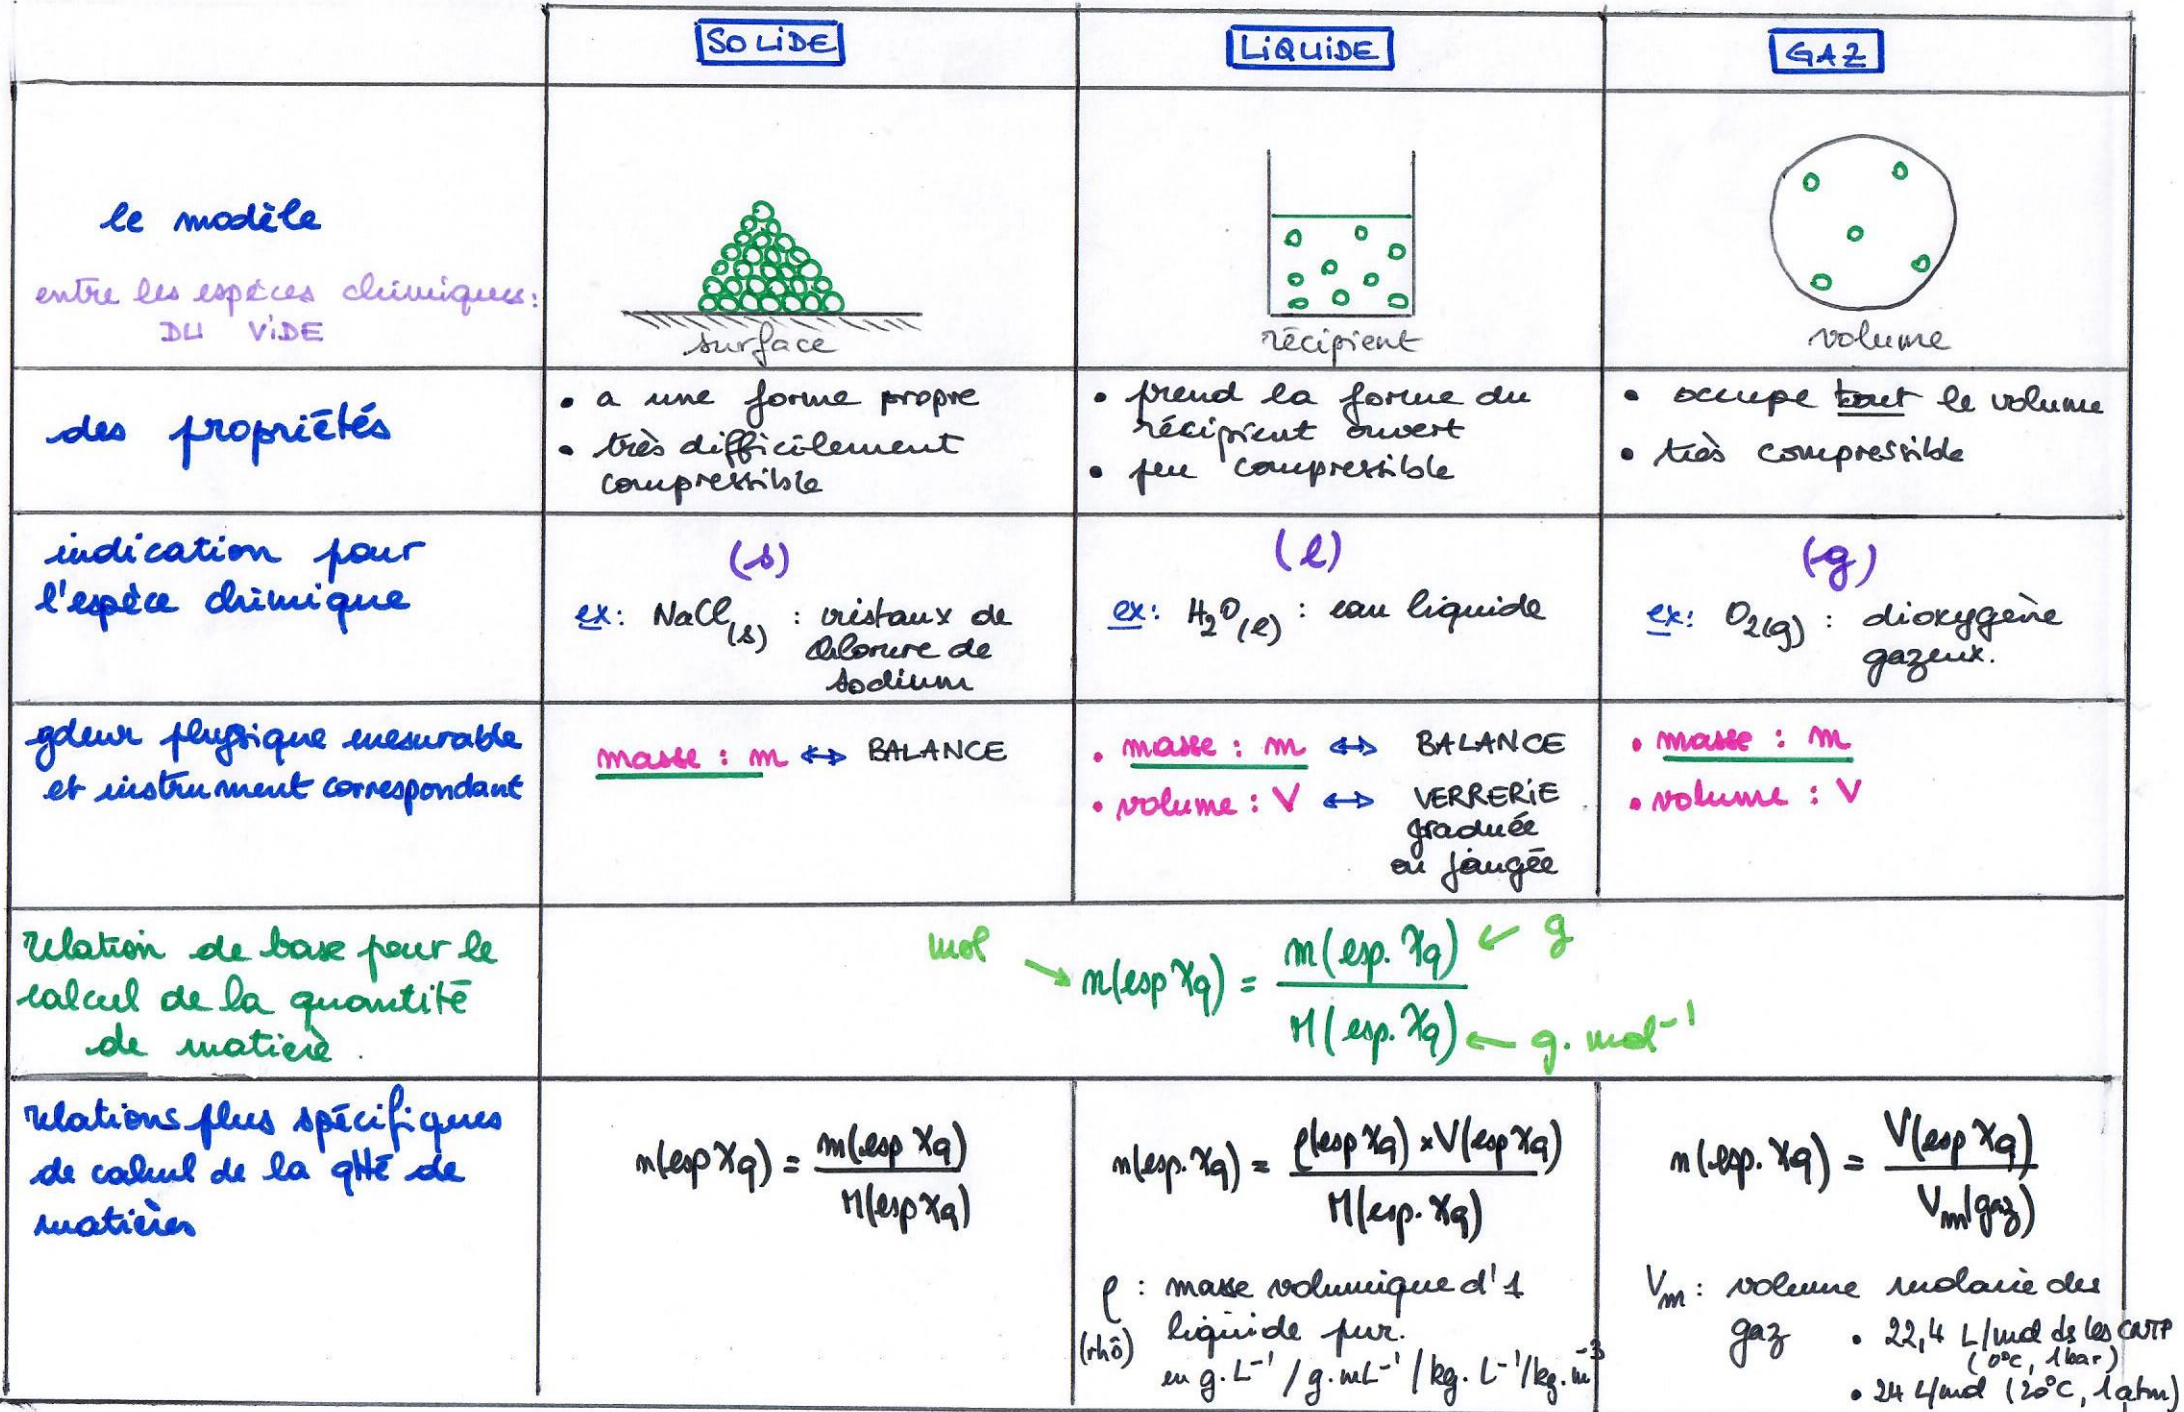 SOLIDE
LIQUIDE
GAZ
le modèle
entre les espèces chimiques :
DU VIDE
surface
récipient
volume
des propriétés
• a une forme propre
• très difficilement
compressible
• prend la forme du
récipient ouvert
• peu compressible
• occupe tout le volume
• très compressible
indication pour
l'espèce chimique
(s)
ex: NaCl(s) : cristaux de
chlorure de
sodium
(l)
ex: H₂O(l) : eau liquide
(g)
ex: O₂(g) : dioxygène
gazeux.
gdeur physique mesurable
et instrument correspondant
masse : m ↔ BALANCE
• masse : m ↔ BALANCE
• volume : V ↔ VERRERIE
graduée
ou jaugée
• masse : m
• volume : V
relation de base pour le
calcul de la quantité
de matière.
mol → n(esp Xq) = m(esp. Xq) ← g
M(esp. Xq) ← g.mol⁻¹
relations plus spécifiques
de calcul de la qtté de
matières
n(esp Xq) = m(esp Xq)
M(esp Xq)
n(esp. Xq) = ρ(esp Xq) × V(esp Xq)
M(esp. Xq)
ρ : masse volumique d'1
(rhô) liquide pur.
en g.L⁻¹ / g.mL⁻¹ / kg.L⁻¹ / kg.m⁻³
n(esp. Xq) = V(esp Xq)
Vm(gaz)
Vm : volume molaire des
gaz • 22,4 L/mol ds les CNTP
(0°C, 1bar)
• 24 L/mol (20°C, 1atm)